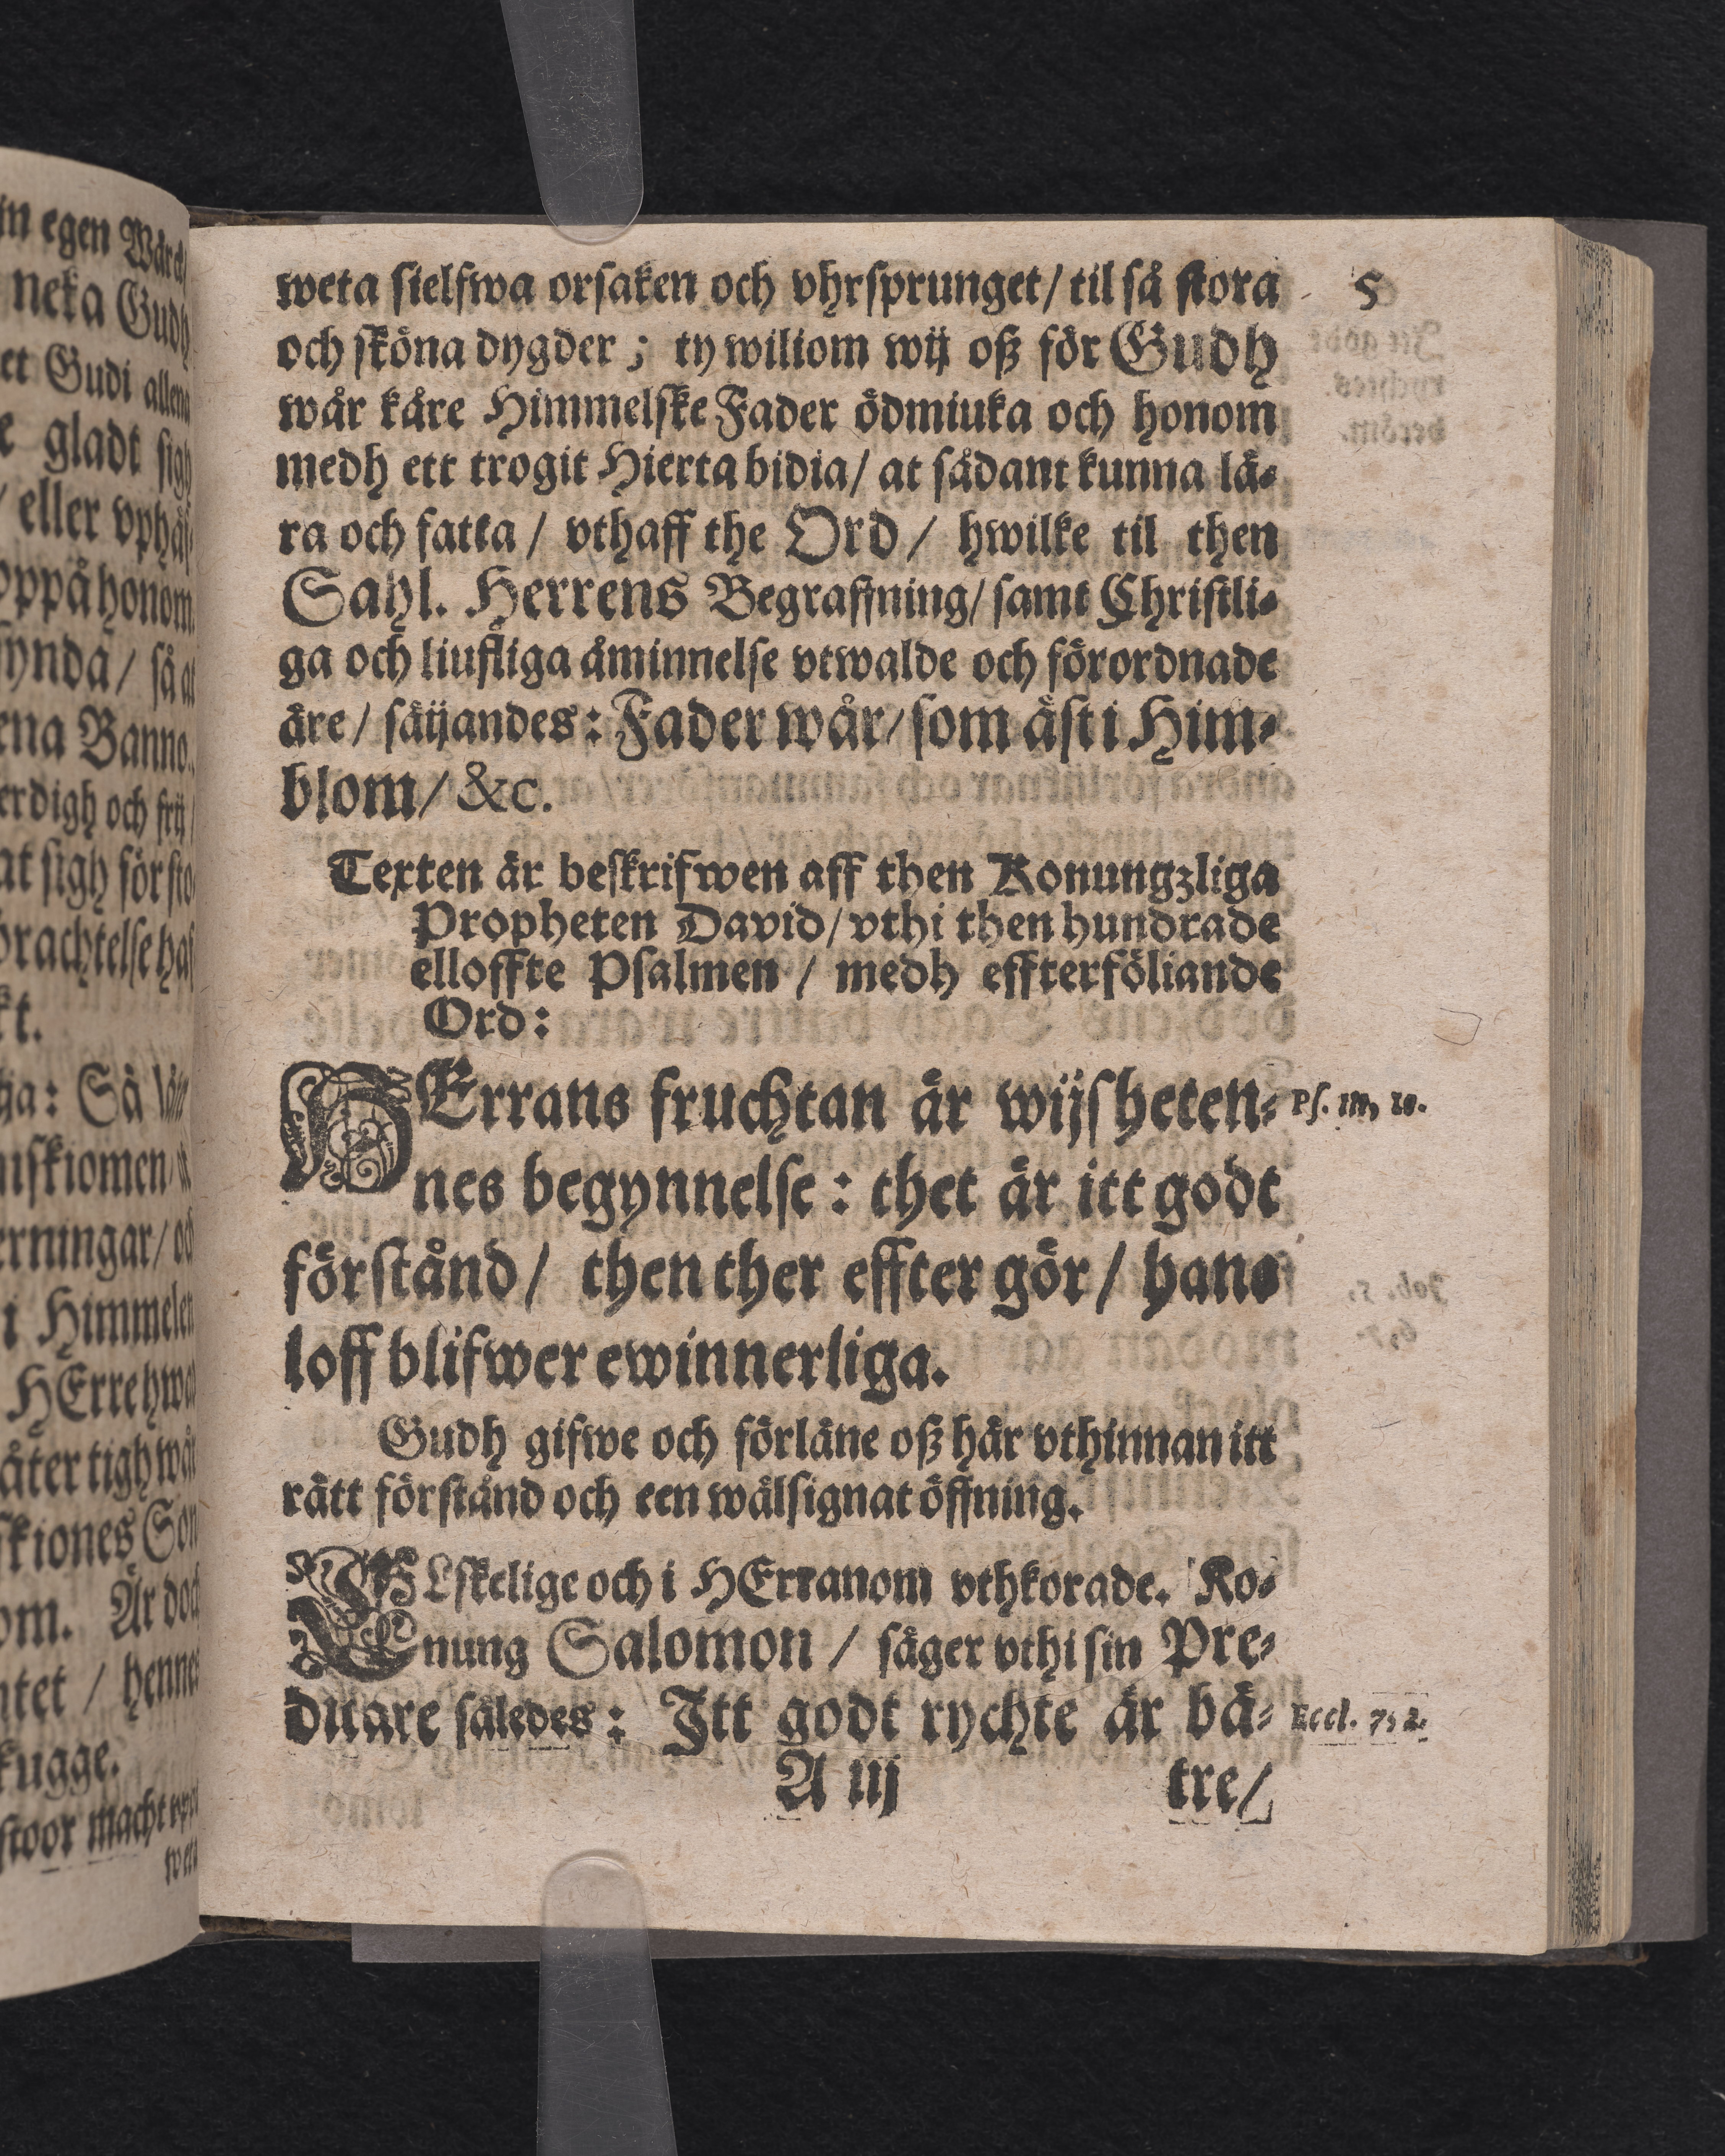 weta sielfwa orsaken och vhrsprunget/ til så stora
5
och sköna dygder; ty wiliom wij oß för Gudh
wår käre Himmelske Fader ödmiuka och honom
medh ett trogit Hierta bidia/ at sådant kunna lä-
ra och fatta/ vthaff the Ord/ hwilke til then
Sahl. Herrens Begraffning/ samt Christli-
ga och liufliga åminnelse vtwalde och förordnade
äre/ säijandes: Fader wår/ som äst i Him-
blom/ &c.
Texten är beskrifwen aff then Konungzliga
Propheten David/ vthi then hundrade
elloffte Psalmen/ medh effterföliande
Ord:
HErrans fruchtan är wijsheten-
Ps. 111, 10.
nes begynnelse: thet är itt godt
förstånd/ then ther effter gör/ hans
loff blifwer ewinnerliga.
Gudh gifwe och förläne oß här vthinnan itt
rätt förstånd och een wälsignat öffning.
ÄLskelige och i HErranom vthkorade. Ko-
nung Salomon/ säger vthi sin Pre-
dikare således: Itt godt rychte är bä-
Eccl. 7, 2.
A iij
tre/